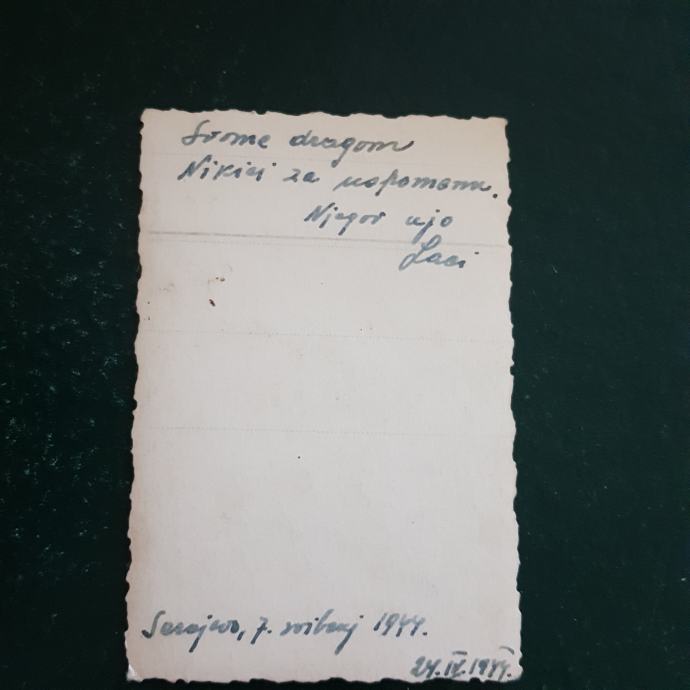 Svome dragom
Nikici za uspomenu.
Njegov ujo
Laci
Sarajevo, 7. svibanj 1944.
24.IV.1944.